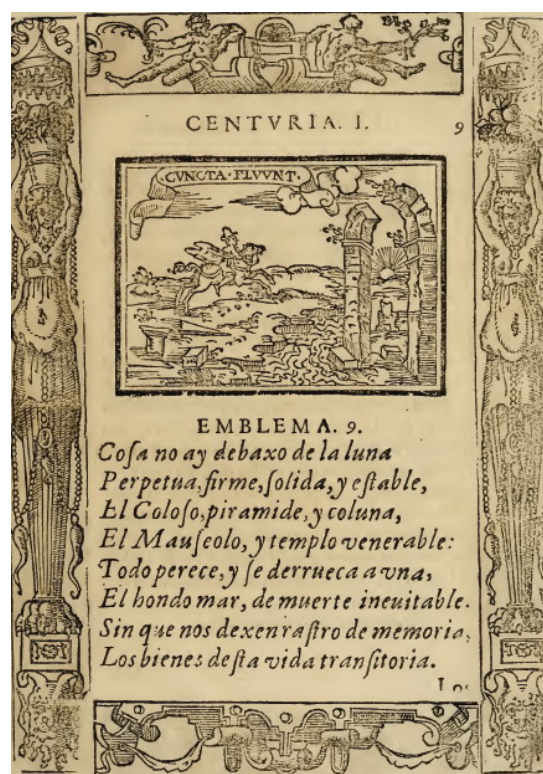 CENTVRIA. I. 9
CVNCTA·FLVVNT.
EMBLEMA. 9.
Coſa no ay debaxo de la luna
Perpetua, firme, ſolida, y eſtable,
El Coloſo, piramide, y coluna,
El Mauſeolo, y templo venerable:
Todo perece, y ſe derrueca a vna,
El hondo mar, de muerte ineuitable.
Sin que nos dexen raſtro de memoria,
Los bienes deſta vida tranſitoria.